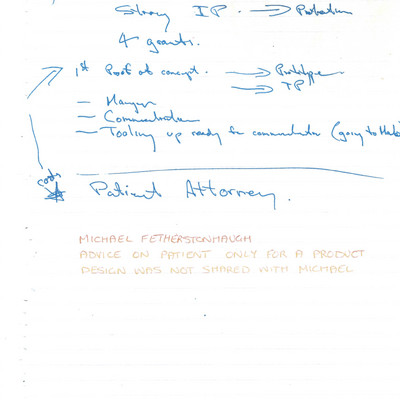 Strong IP. → Protection
4 grants.
1st Proof of concept. → Prototype
→ IP
— Commercialisation
— Tooling up ready for (going to
costs
Patient Attorney.
MICHAEL FETHERSTONHAUGH
ADVICE ON PATIENT ONLY FOR A PRODUCT
DESIGN WAS NOT SHARED WITH MICHAEL